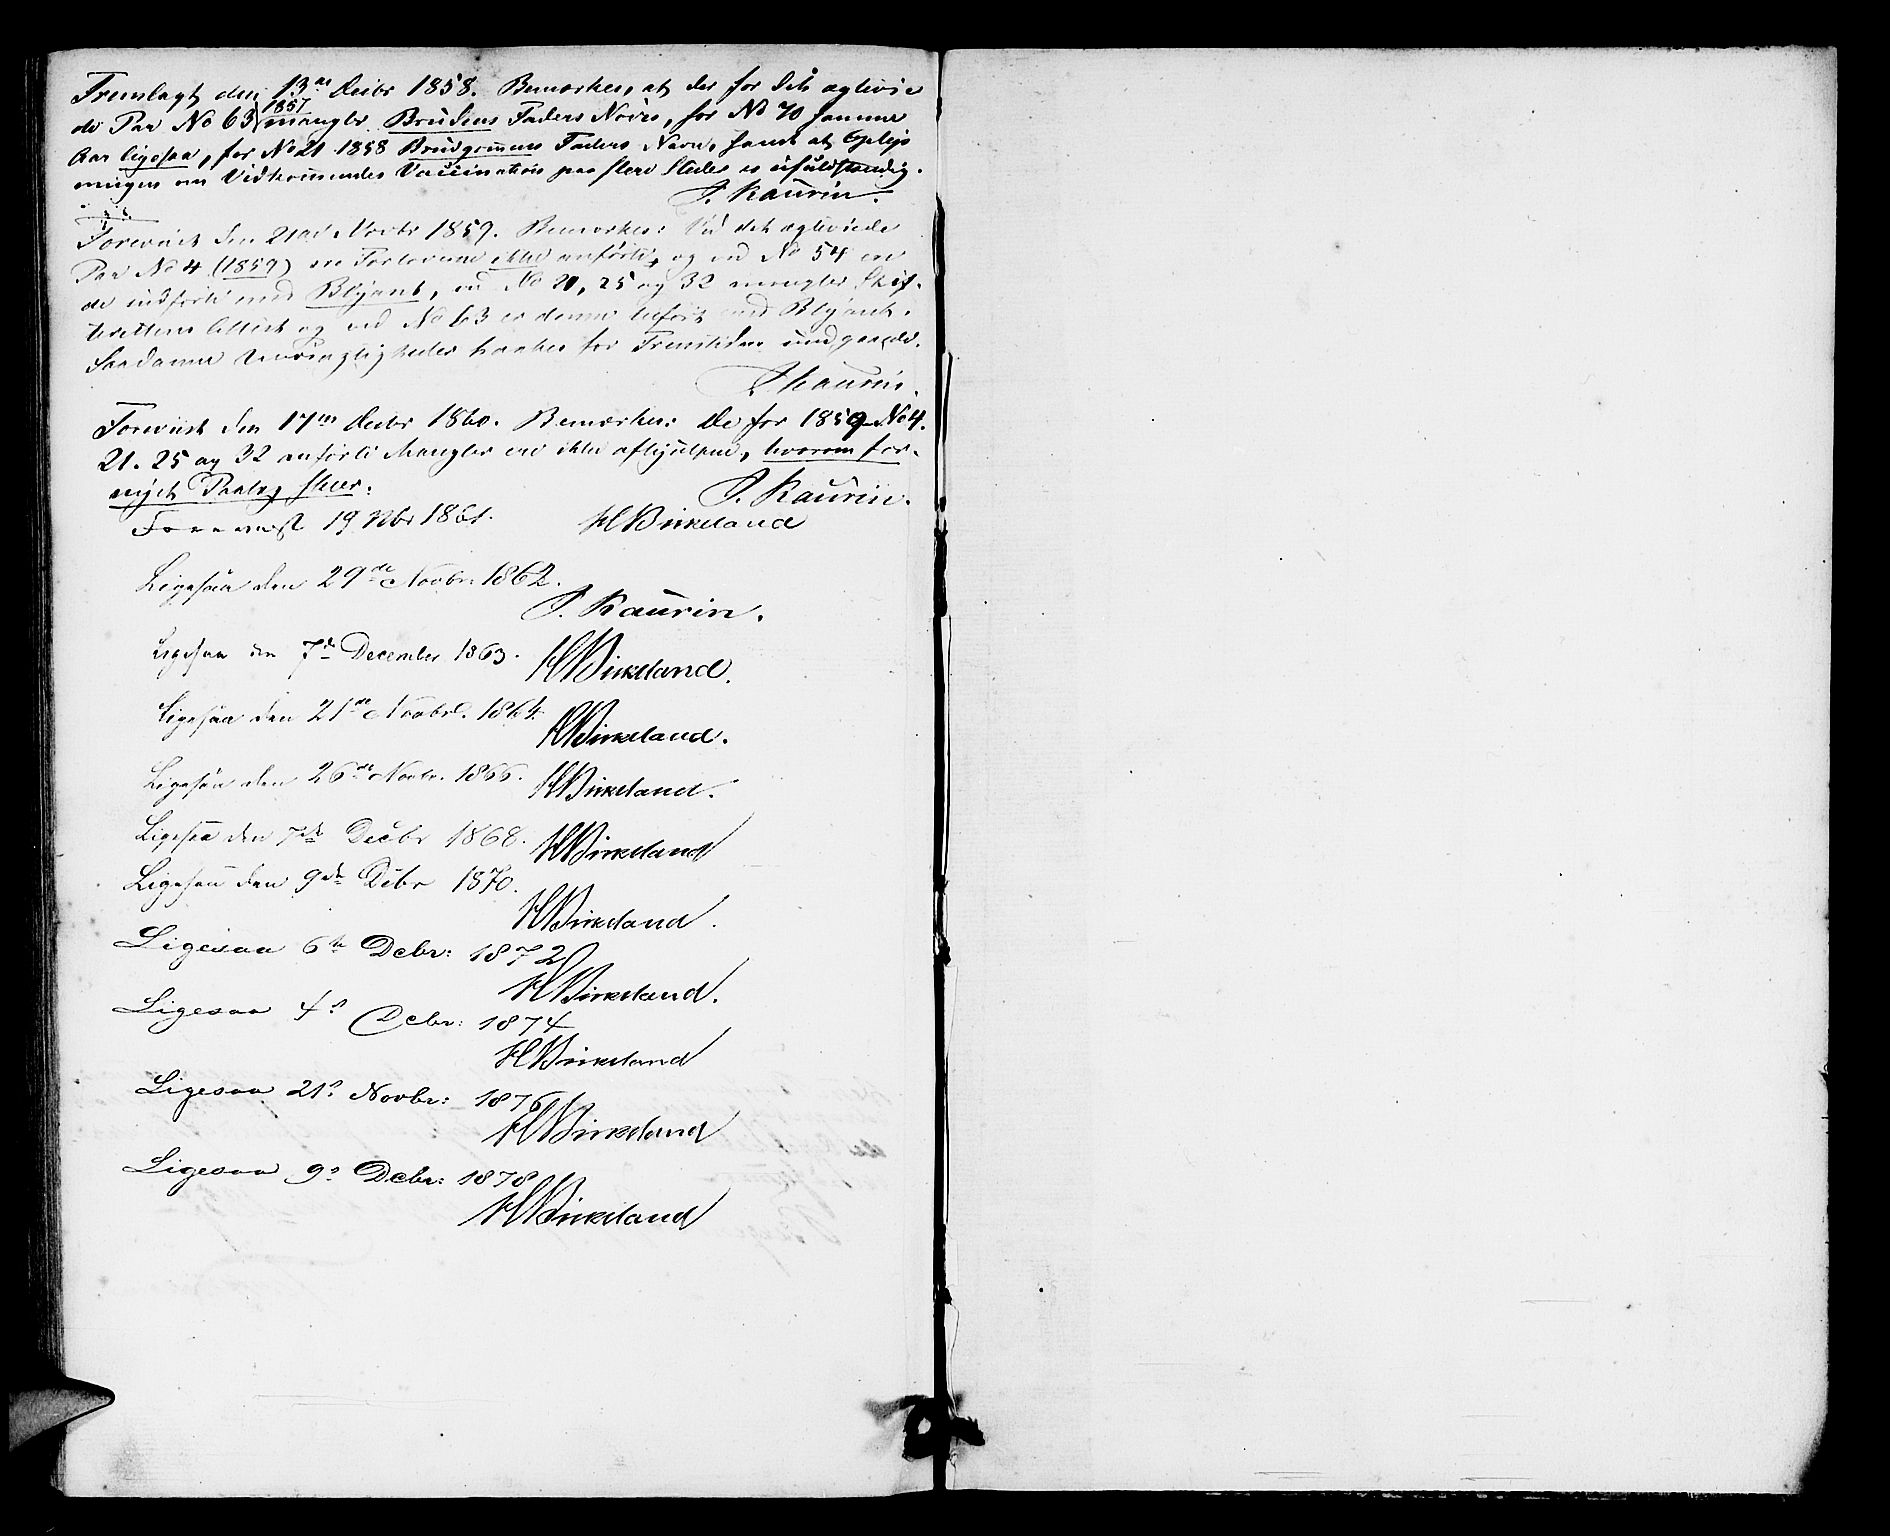 Fremlagt den 13de Decbr 1858. Bemærkes, at der for det ægtevie
de Par No 63 1857 mangler Brudens Faders Navn, for No 70 samme
Aar ligesaa, for No 21 1858 Brudgommens Faders Navn, samt at Oplys
ningen om Vedkommendes Vaccination paa flere Steder er ufuldstændig.
J. Kaurin.
Foreviist den 21de Novbr 1859. Bemærkes: Ved det ægteviede
Par No 4 (1859) ere Forloverne ikke anførte, og ved No 54 ere
de indførte med Blyant, ved No 21, 25 og 32 mangler Skif-
terettens Attest og ved No 63 er denne anført med Blyant.
Saadanne Uordentligheder for Fremtiden undgaaes.
J. Kaurin.
Foreviist den 17de Decbr 1860. Bemærkes: De for 1859 No 4.
21. 25 og 32 anførte Mangler ere ikke afhjulpne, hvorom for-
nyet Paalæg skeer.
J. Kaurin.
Foreviist 19 Nbr 1861. H Birkeland
Ligesaa den 29de Novbr. 1862.
J. Kaurin.
Ligesaa den 7de December 1863. H Birkeland.
Ligesaa den 21de Novbr. 1864. H Birkeland.
Ligesaa den 26de Novbr. 1866. H Birkeland.
Ligesaa den 7de Decbr 1868. H Birkeland
Ligesaa den 9de Debr 1870.
H Birkeland.
Ligesaa 6te Debr: 1872
H Birkeland.
Ligesaa 4d Debr: 1874
H Birkeland
Ligesaa 21d Novbr: 1876
H Birkeland
Ligesaa 9d Debr: 1878
H Birkeland